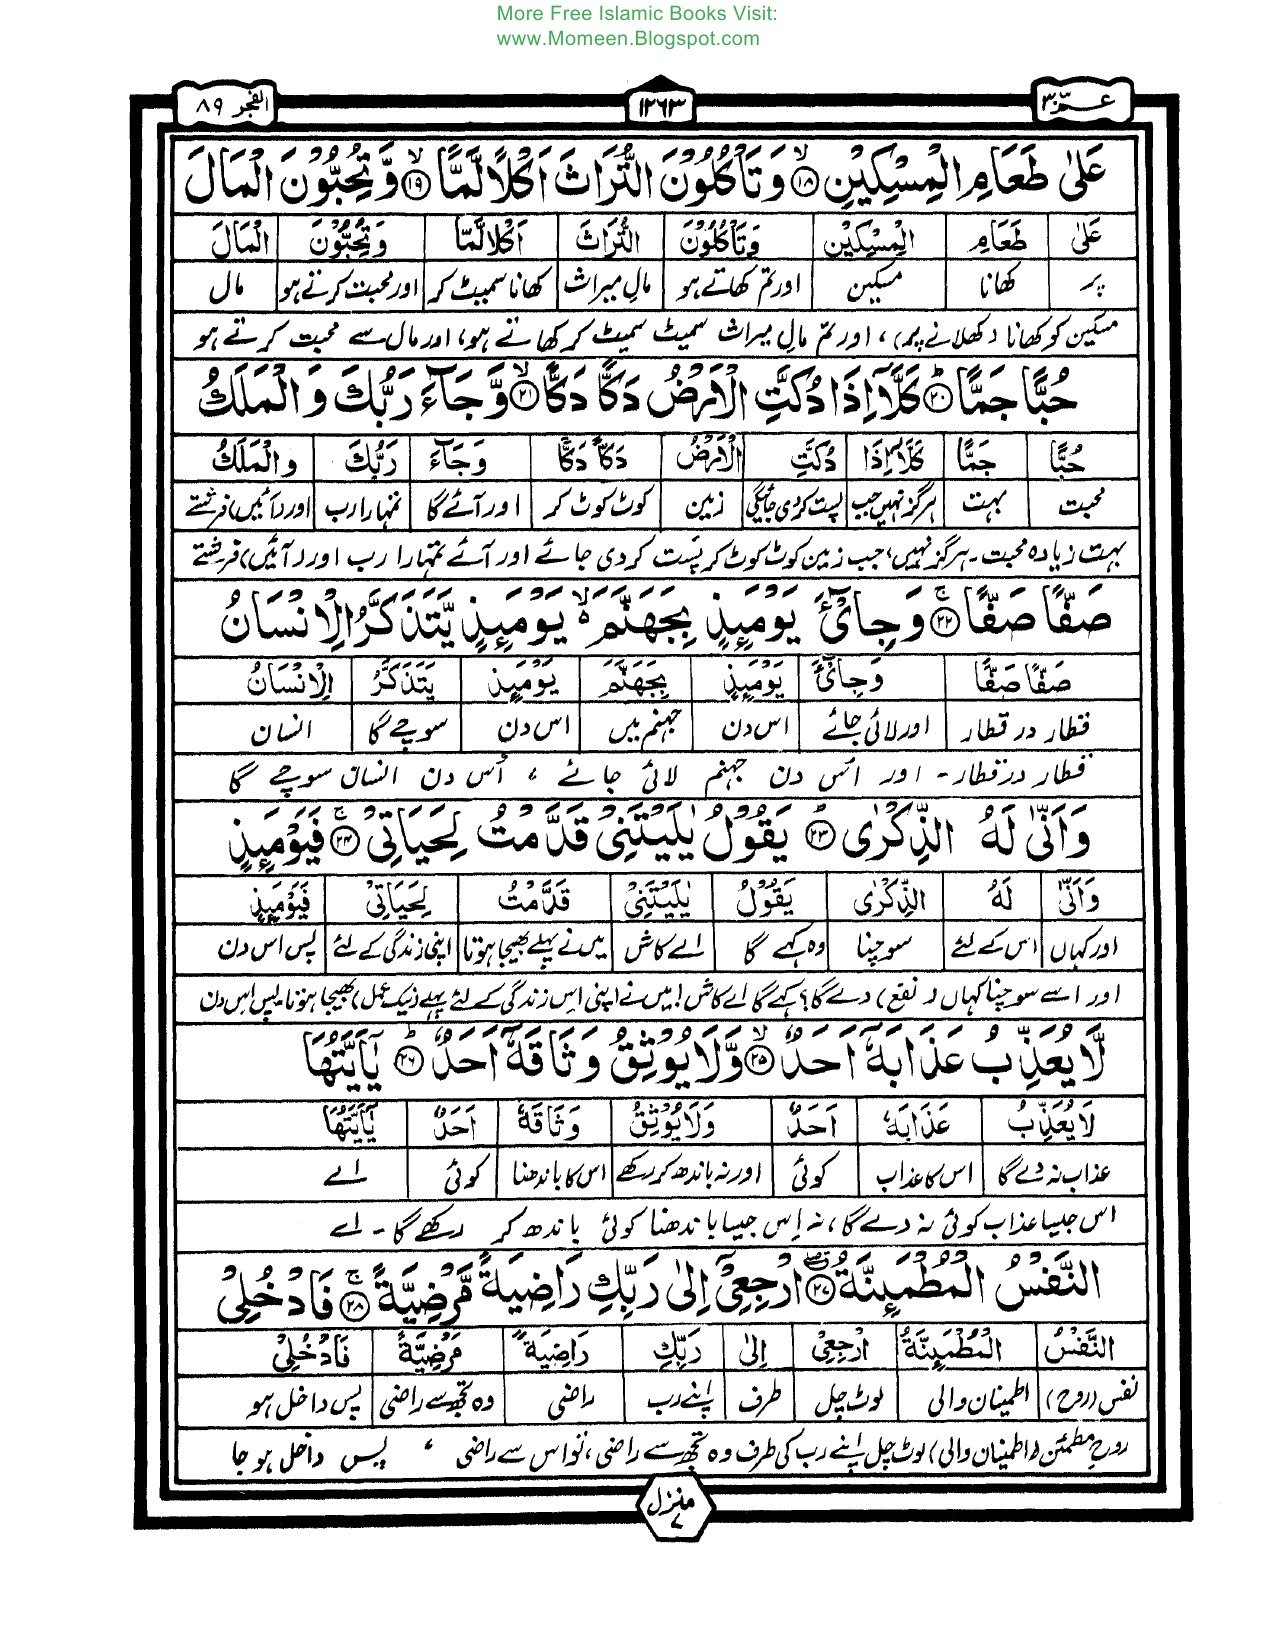 More Free Islamic Books Visit:
www.Momeen.Blogspot.com
عمّ ۳۰ ۱۲۶۳ الفجر ۸۹
عَلٰى طَعَامِ الْمِسْكِيْنِ ۙ‏﴿۱۸﴾ وَتَاْكُلُوْنَ التُّرَاثَ اَكْلًا لَّمًّا ۙ‏﴿۱۹﴾ وَّتُحِبُّوْنَ الْمَالَ
عَلٰى طَعَامِ الْمِسْكِيْنِ وَتَاْكُلُوْنَ التُّرَاثَ اَكْلًا لَّمًّا وَتُحِبُّوْنَ الْمَالَ
پر کھانا مسکین اور تم کھاتے ہو مالِ میراث کھانا سمیٹ کر اور محبت کرتے ہو مال
مسکین کو کھانا (کھلانے پر)، اور تم مالِ میراث سمیٹ سمیٹ کر کھاتے ہو، اور مال سے محبت کرتے ہو
حُبًّا جَمًّا ؕ‏﴿۲۰﴾ كَلَّاۤ اِذَا دُكَّتِ الْاَرْضُ دَكًّا دَكًّا ۙ‏﴿۲۱﴾ وَّجَآءَ رَبُّكَ وَالْمَلَكُ
حُبًّا جَمًّا كَلَّاۤ اِذَا دُكَّتِ الْاَرْضُ دَكًّا دَكًّا وَجَآءَ رَبُّكَ وَالْمَلَكُ
محبت بہت ہرگز نہیں جب پست کردی جائیگی زمین کوٹ کوٹ کر اور آئے گا تمہارا رب اور (آئیں) فرشتے
بہت زیادہ محبت۔ ہرگز نہیں، جب زمین کوٹ کوٹ کر پست کر دی جائے اور آئے تمہارا رب اور (آئیں) فرشتے
صَفًّا صَفًّا ۚ‏﴿۲۲﴾ وَجِایْٓءَ يَوْمَئِذٍۭ بِجَهَنَّمَ ۙ يَوْمَئِذٍ يَّتَذَكَّرُ الْاِنْسَانُ
صَفًّا صَفًّا وَجِایْٓءَ يَوْمَئِذٍ بِجَهَنَّمَ يَوْمَئِذٍ يَتَذَكَّرُ الْاِنْسَانُ
قطار در قطار اور لائی جائے اس دن جہنم میں اس دن سوچے گا انسان
قطار در قطار۔ اور اس دن جہنم لائی جائے ، اُس دن انسان سوچے گا
وَاَنّٰى لَهُ الذِّكْرٰى ؕ‏﴿۲۳﴾ يَقُوْلُ يٰلَيْتَنِىْ قَدَّمْتُ لِحَيَاتِىْ ۚ‏﴿۲۴﴾ فَيَوْمَئِذٍ
وَاَنّٰى لَهُ الذِّكْرٰى يَقُوْلُ يٰلَيْتَنِىْ قَدَّمْتُ لِحَيَاتِىْ فَيَوْمَئِذٍ
اور کہاں اس کے لئے سوچنا وہ کہے گا اے کاش میں نے پہلے بھیجا ہوتا اپنی زندگی کے لئے پس اس دن
اور اسے سوچنا کہاں (نفع) دے گا؟ کہے گا اے کاش! میں نے اپنی اس زندگی کے لئے پہلے (نیک عمل) بھیجا ہوتا۔ پس اس دن
لَّا يُعَذِّبُ عَذَابَهٗۤ اَحَدٌ ۙ‏﴿۲۵﴾ وَّلَا يُوْثِقُ وَثَاقَهٗۤ اَحَدٌ ؕ‏﴿۲۶﴾ يٰۤاَيَّتُهَا
لَا يُعَذِّبُ عَذَابَهٗ اَحَدٌ وَلَا يُوْثِقُ وَثَاقَهٗ اَحَدٌ يٰۤاَيَّتُهَا
عذاب نہ دے گا اس کا عذاب کوئی اور نہ باندھ کر رکھے اس کا باندھنا کوئی اے
اس جیسا عذاب کوئی نہ دے گا، نہ اِس جیسا باندھنا کوئی باندھ کر رکھے گا۔ اے
النَّفْسُ الْمُطْمَئِنَّةُ ‏﴿۲۷﴾ ارْجِعِىْۤ اِلٰى رَبِّكِ رَاضِيَةً مَّرْضِيَّةً ۚ‏﴿۲۸﴾ فَادْخُلِىْ
النَّفْسُ الْمُطْمَئِنَّةُ ارْجِعِىْ اِلٰى رَبِّكِ رَاضِيَةً مَرْضِيَّةً فَادْخُلِىْ
نفس (روح) اطمینان والی لوٹ چل طرف اپنے رب راضی وہ تجھ سے راضی پس داخل ہو
روحِ مطمئن (اطمینان والی) لوٹ چل اپنے رب کی طرف وہ تجھ سے راضی، تو اس سے راضی ، پس داخل ہو جا
منزل ۷